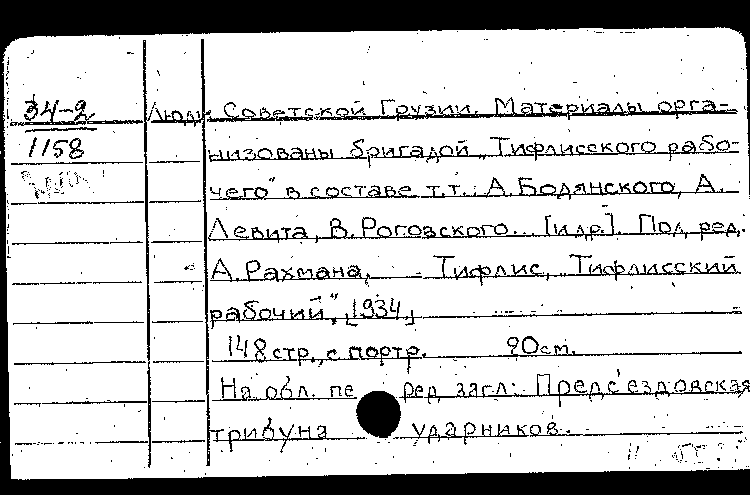 34-2 Люди Советской Грузии. Материалы орга-
1158 низованы бригадой „Тифлисского рабо-
чего" в составе т.т.: А. Бодянского, А.
Левита, В. Роговского... [и др.]. Под ред.
А. Рахмана. - Тифлис, „Тифлисский
рабочий", [1934]
148 стр., с портр. 20 см.
На обл. пе ред загл.: Предс'ездовская
трибуна ударников.